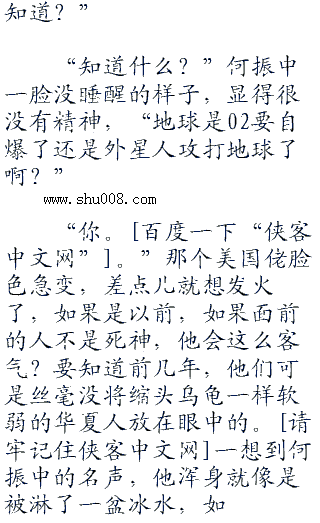 知道？”
“知道什么？”何振中
一脸没睡醒的样子，显得很
没有精神，“地球是02要自
爆了还是外星人攻打地球了
啊？”
www.shu008.com
“你。[百度一下“侠客
中文网”]。”那个美国佬脸
色急变，差点儿就想发火
了，如果是以前，如果面前
的人不是死神，他会这么客
气？要知道前几年，他们可
是丝毫没将缩头乌龟一样软
弱的华夏人放在眼中的。[请
牢记住侠客中文网]一想到何
振中的名声，他浑身就像是
被淋了一盆冰水，如